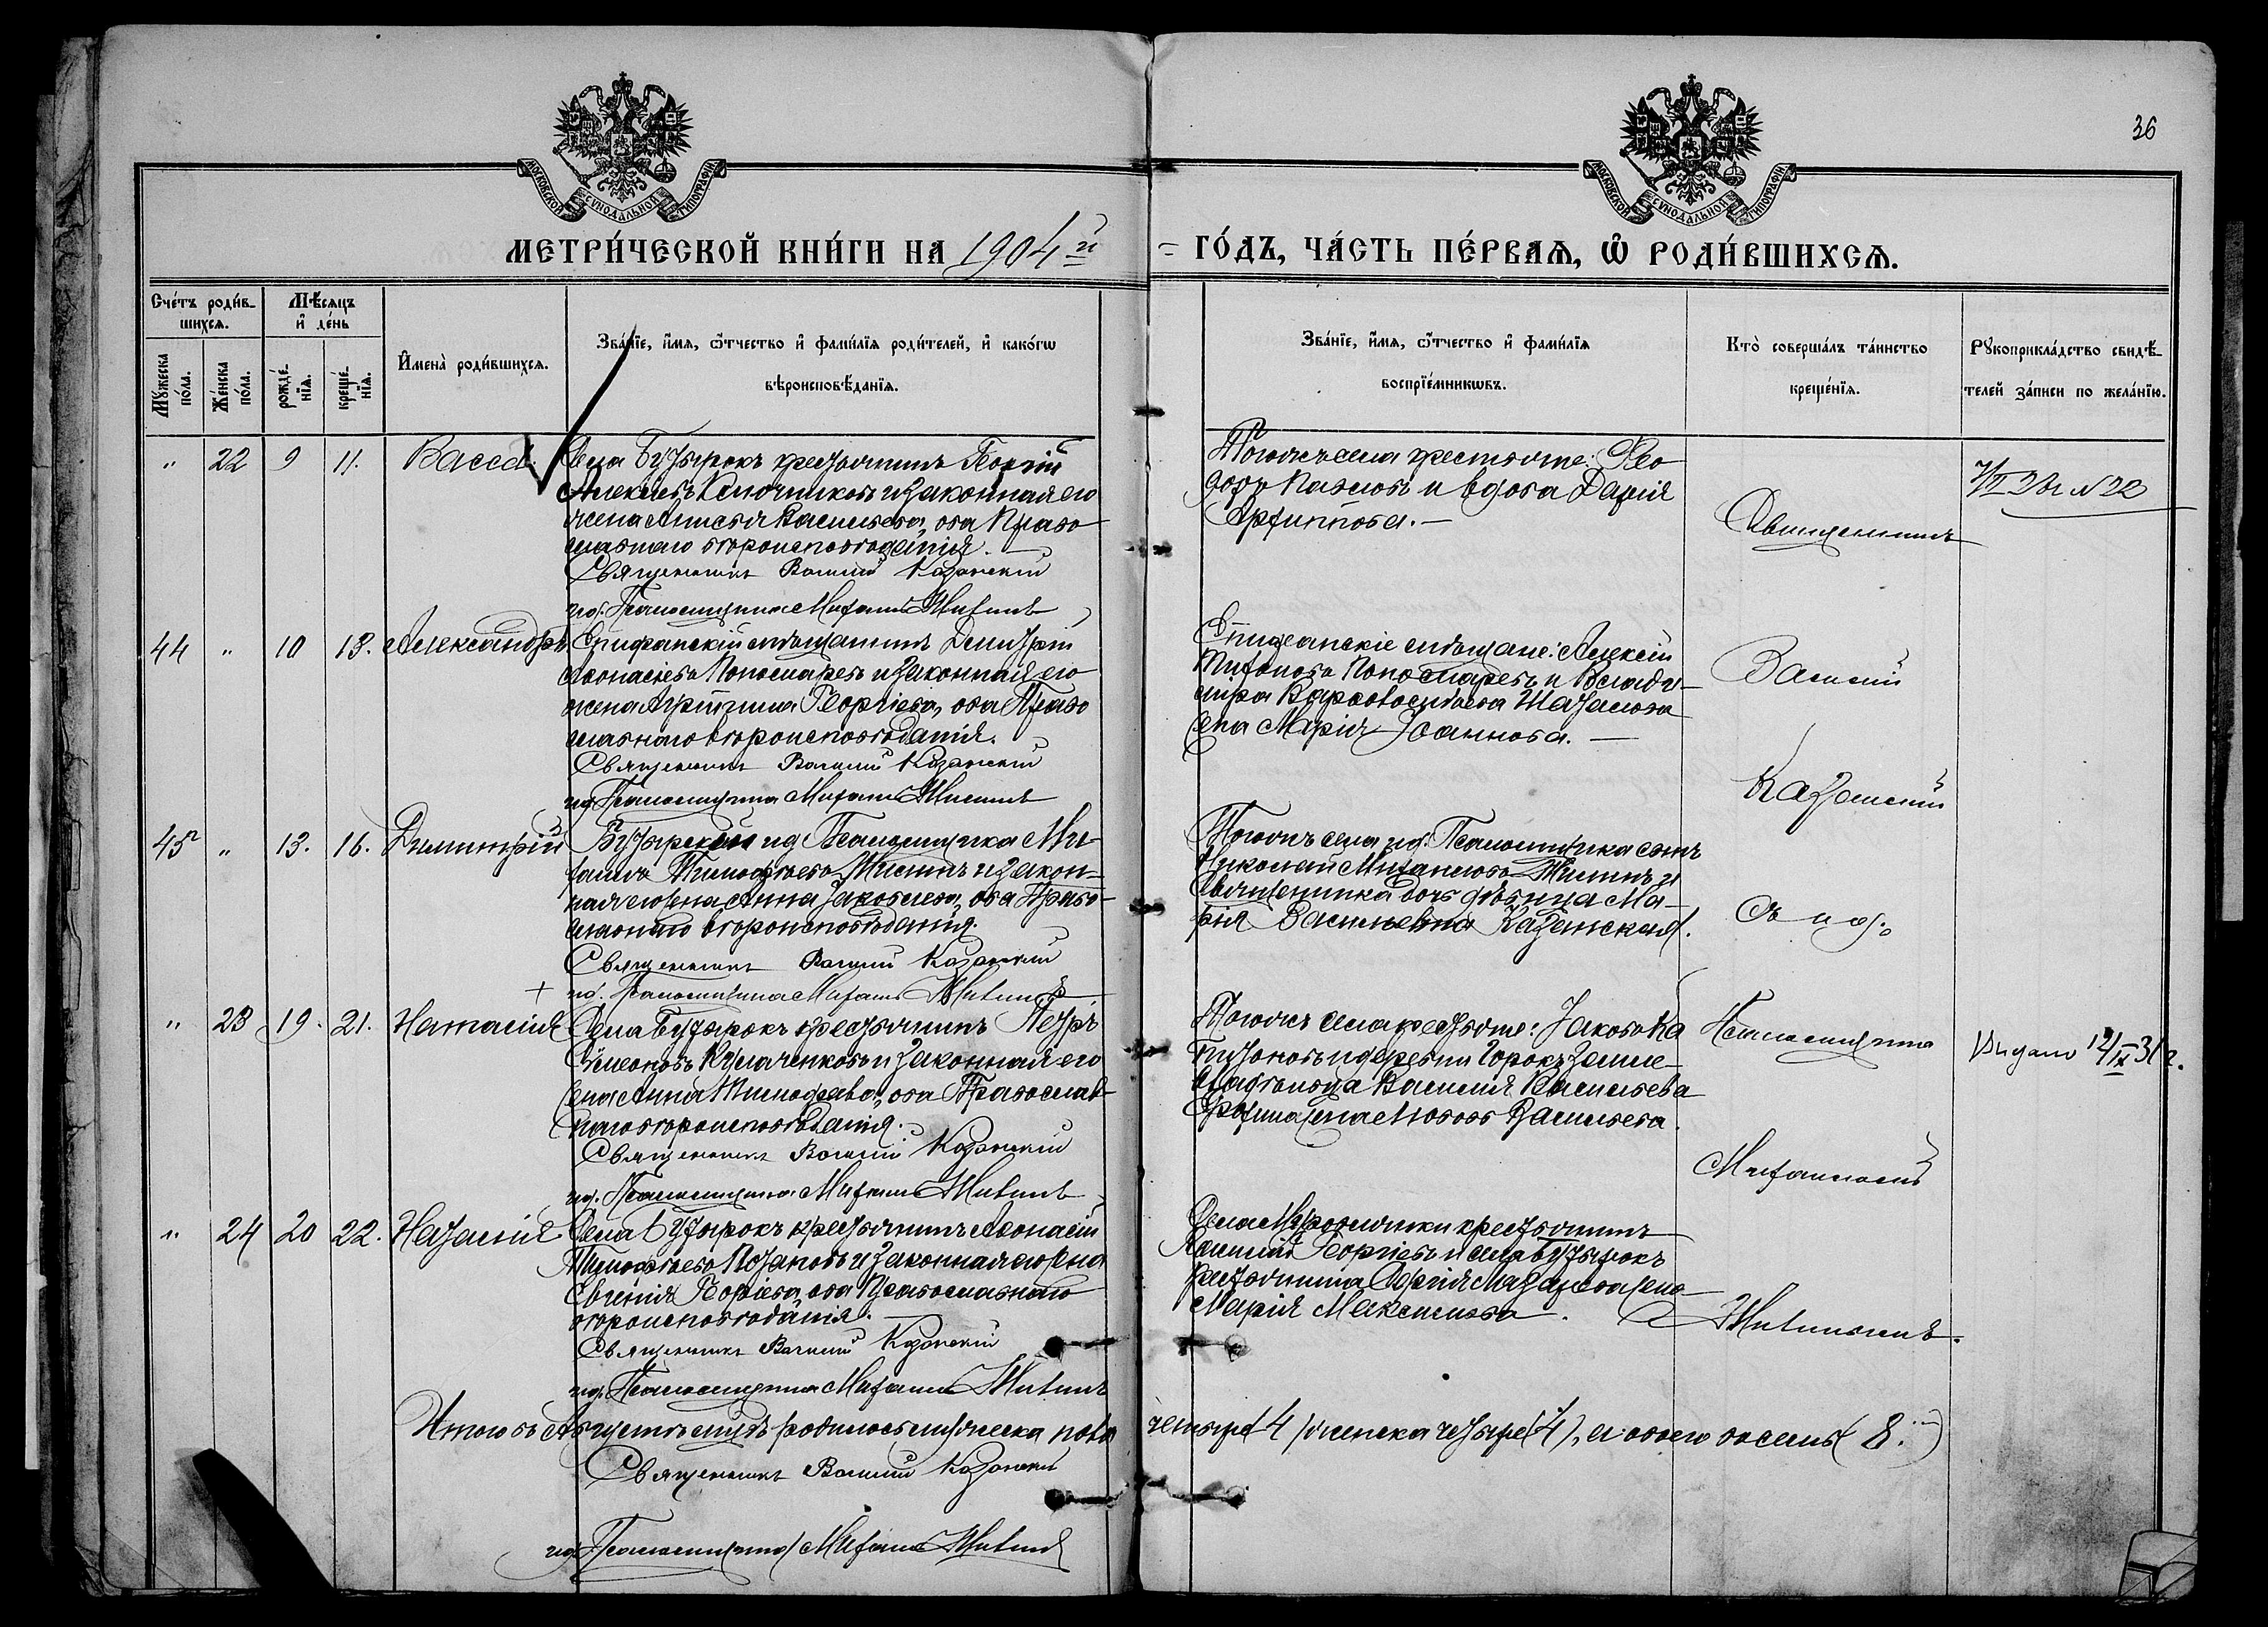 36
МОСКОВСКОЙ СѴНОДАЛЬНОЙ ТИПОГРАФІИ
МОСКОВСКОЙ СѴНОДАЛЬНОЙ ТИПОГРАФІИ
МЕТРИ́ЧЕСКОЙ КНИ́ГИ НА 1904 й
ГО́ДЪ, ЧА́СТЬ ПЕ́РВАѦ, Ѡ РОДИ́ВШИХСѦ.
Сче́тъ роди́в-
шихсѧ.
Мꙋжеска по́ла.
Же́нска по́ла.
Мѣ́сѧцъ
и де́нь
рожде́-
нїѧ.
креще́-
нїѧ.
Имена̀ роди́вшихсѧ.
Зва́нїе, и́мѧ, ѻ́тчество и фами́лїѧ роди́телей, и како́гѡ
вѣроисповѣ́данїѧ.
Зва́нїе, и́мѧ, ѻ́тчество и фами́лїѧ
воспрїе́мникѡвъ.
Кто̀ соверша́лъ та́инство
креще́нїѧ.
Рꙋкоприкла́дство свидѣ́-
телей за́писи по жела́нїю.
" 22 9 11. Васса
Села Бутырокъ крестьянинъ Георгій
Алексѣевъ Ключниковъ и законная его
жена Анисья Васильева, оба Право-
славнаго вѣроисповѣданія.
Священникъ Василій Казанскій
ид. Псаломщика Михаилъ Житинъ
Тогожъ села крестьяне: Ѳео-
доръ Павловъ и вдова Дарія
Архипова.
Священникъ
N 22
44 " 10 13. Александръ
Епифанскій мѣщанинъ Димитрій
Аѳонасіевъ Пономаревъ и законная его
жена Агрипина Георгіева, оба Право
славнаго вѣроисповѣданія.
Священникъ Василій Казанскій
ид. Псаломщика Михаилъ Житинъ
Епифанскіе мѣщане: Алексій
Пономаревъ и Влади-
мира
жена Марія Іоаннова.
Василій
Казанскій
45 " 13. 16. Димитрій
Бутырскій ид. Псаломщика Ми-
хаилъ Тимоѳеевъ Житинъ и закон-
ная его жена Анна Іаковлева, оба Право-
славнаго вѣроисповѣданія.
Священникъ Василій Казанскій
ид. Псаломщика Михаилъ Житинъ
Тогожъ села ид. Псаломщика сынъ
Николай Михаиловъ Житинъ и
Священника дочь дѣвица Ма-
рія Васильевна Казанская.
съ ид.
" 23 19. 21. Наталія
Села Бутырокъ крестьянинъ Петръ
Симеоновъ и законная его
жена Анна Тимоѳеева, оба Православ-
наго вѣроисповѣданія.
Священникъ Василій Казанскій
ид. Псаломщика Михаилъ Житинъ
Тогожъ села крестьяне: Іаковъ Ка
питоновъ и деревни Горокъ земле-
владѣльца Василія Васильева
жена Васильева.
Псаломщика
Выдано 12/IX 31 г.
Михаиломъ
" 24 20 22. Наталія
Села Бутырокъ крестьянинъ Аѳонасій
Тимоѳеевъ и законная его жена
Евгенія Георгіева, оба Православнаго
вѣроисповѣданія.
Священникъ Василій Казанскій
ид. Псаломщика Михаилъ Житинъ
Села крестьянинъ
Георгіевъ и села Бутырокъ
крестьянина Сергія жена
Марія Максимова.
Житинымъ.
Итого въ Августѣ мцѣ родилось мужеска пола
четыре (4) женска четыре (4), а всего восемь (8.)
Священникъ Василій Казанскій
ид. Псаломщика Михаилъ Житинъ